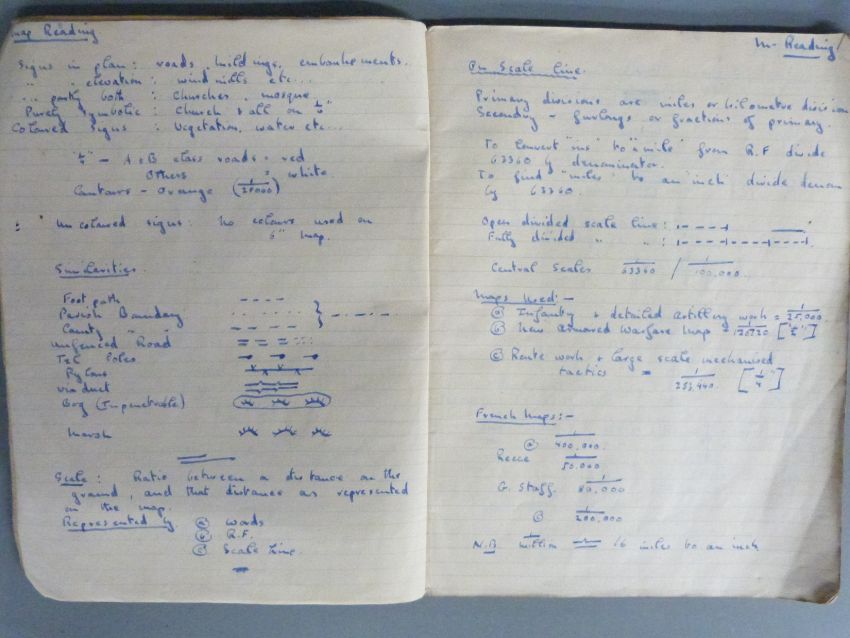 Map Reading
Signs in plan: roads, buildings, embankments.
" " elevation: windmills etc...
" partly both: Churches, mosque.
Purely symbolic: Church & all on ½"
Coloured Signs: Vegetation, water etc...
½" - A & B class roads = red
Others " white.
Contours - Orange (1/25000)
Uncoloured signs: no colours used on
6" map.
Similarities.
Foot path
Parish Boundary
County "
unfenced Road
Tel Poles
Pylons
viaduct
Bog (Impenetrable)
Marsh
Scale: Ratio between a distance on the
ground, and that distance as represented
on the map.
Represented by (a) words
(b) R.F.
(c) Scale Line.
m - Reading
On Scale line.
Primary divisions are miles or kilometre division
Secondry - furlongs or fractions of primary.
To convert "ins" to "a mile" from R.F divide
63360 by denominator.
To find "miles" to an inch divide denom
by 63360.
Open divided scale line:
Fully divided " " :
Central Scales 1/63360 / 1/100,000.
Maps Used:-
(a) Infantry & detailed artillery work = 1/25,000.
(b) New armoured warfare map [½"]
(c) Route work & large scale mechanised
tactics = 1/253,440. [¼"]
French Maps:-
(a) 1/400,000.
Recce 1/50.000
G. Staff. 1/80,000
1/200,000
N.B. 1/million = 16 miles to an inch